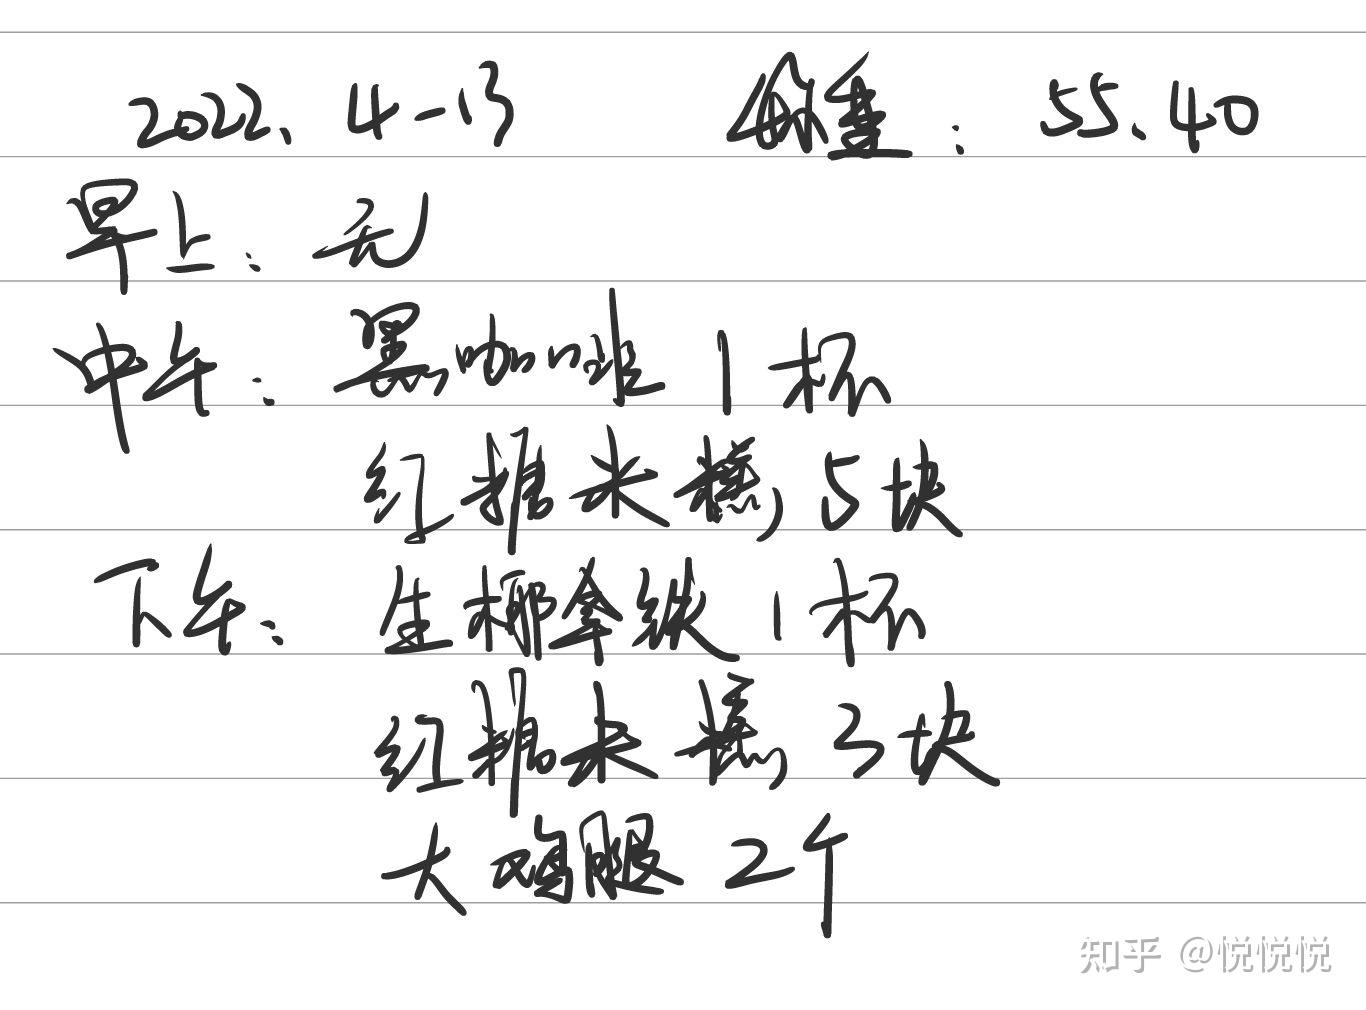 2022.4-13 体重：55.40
早上：无
中午：黑咖啡1杯
红糖米糕，5块
下午：生椰拿铁1杯
红糖米糕，3块
大鸡腿2个
知乎 @悦悦悦